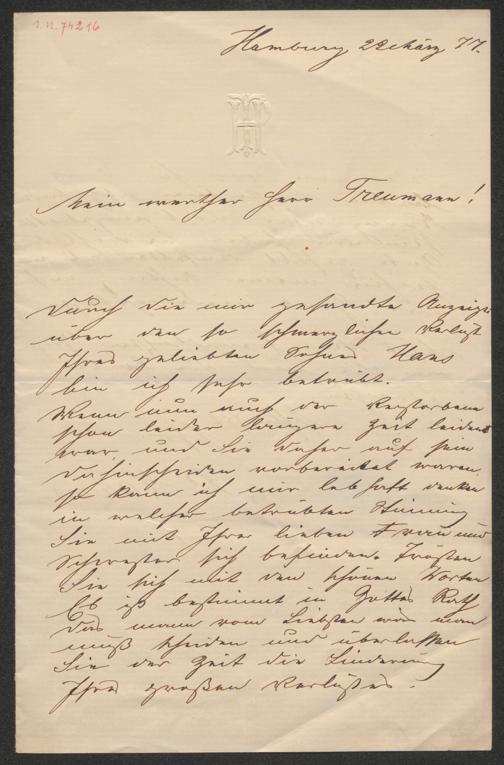 I.N. 74216
Hamburg 22 März 77.
HP
Mein werther Herr Treumann!
Durch die mir gesandte Anzeige
über den so schmerzlichen Verlust
Ihres geliebten Sohnes Hans
bin ich sehr betrübt.
Wenn nun auch der Verstorbene
schon leider längere Zeit leidend
war, und Sie daher auf sein
Dahinscheiden vorbereitet waren,
so kann ich mir lebhaft denken
in welcher betrübten Stimmung
Sie mit Ihrer lieben Frau und
Schwester sich befinden. Trösten
Sie sich mit den schönen Worten
Es ist bestimmt in Gottes Rath
Das mann vom Liebsten was man
muß scheiden und überlassen
Sie der Zeit die Linderung
Ihres großen Verlustes.